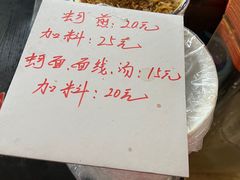 蚵煎：20元
加料：25元
蚵面、面线、汤：15元
加料：20元